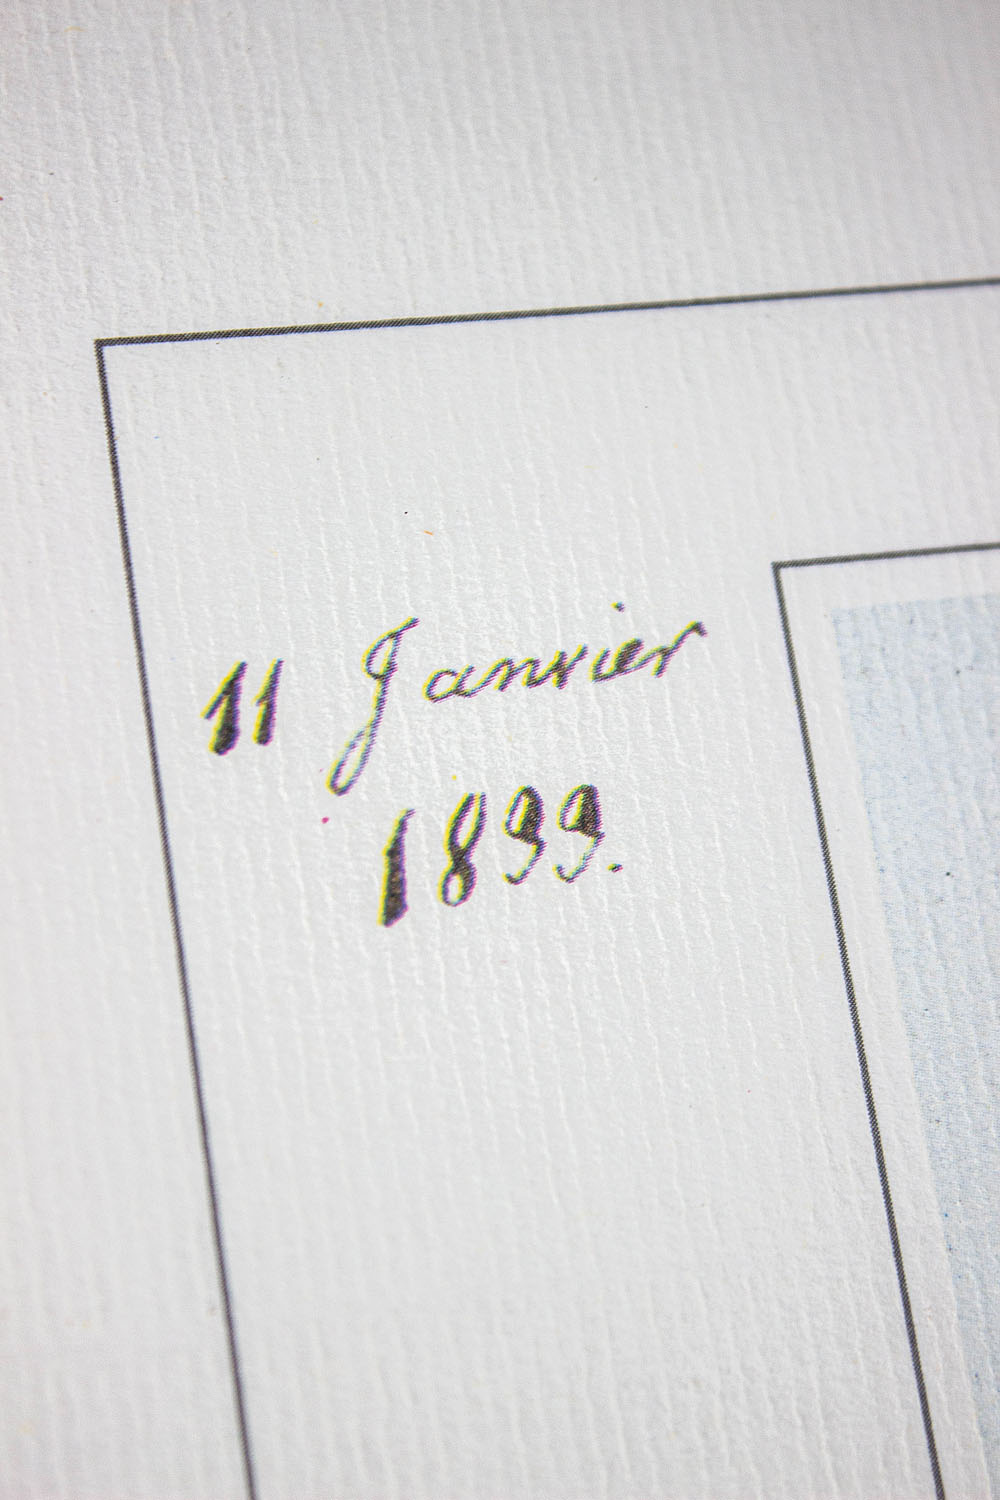 11 Janvier
1899.